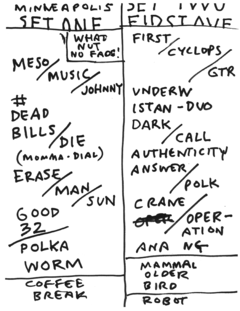 MINNEAPOLIS
SET ONE
WHAT
NUT
NO FADE!
MESO/
MUSIC/
JOHNNY
#
DEAD
BILLS/
DIE
(MOMMA-DIAL)
ERASE/
MAN/
SUN
GOOD
32
POLKA
WORM
COFFEE
BREAK
SET TWO
FIRST AVE
FIRST/
CYCLOPS/
GTR
UNDERW
ISTAN-DUO
DARK/
CALL
AUTHENTICITY
ANSWER/
POLK
CRANE/
OPER-
ATION
ANA NG
MAMMAL
OLDER
BIRD
ROBOT